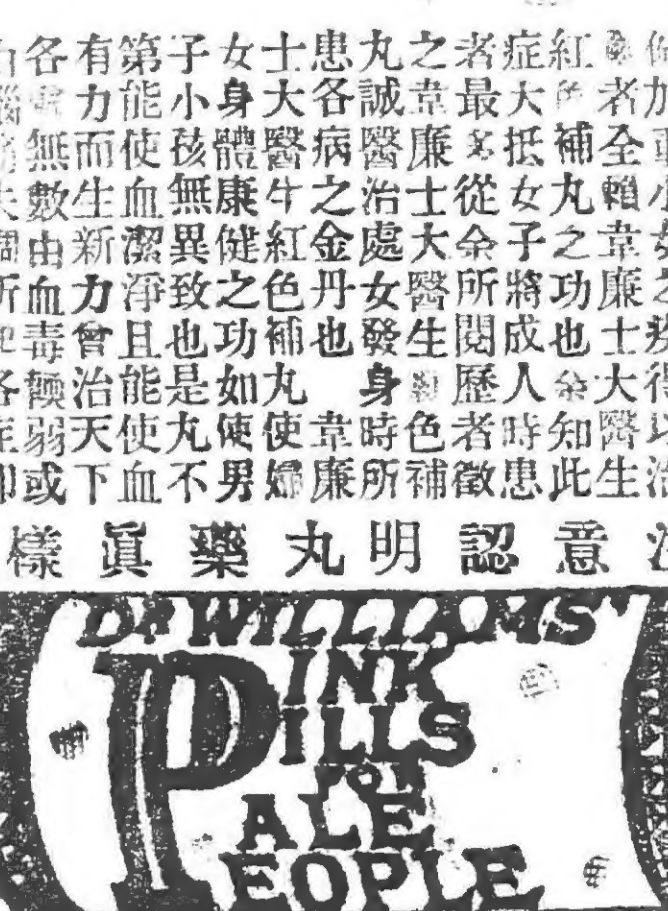 者全賴韋廉士大醫生
紅色補丸之功也余知此
症大抵女子將成人時患
者最多從余所閱歷者徵
之韋廉士大醫生紅色補
丸誠醫治處女發身時所
患各病之金丹也 韋廉
士大醫生紅色補丸使婦
女身體康健之功如使男
子小孩無異致也是丸不
第能使血潔淨且能使血
有力而生新力曾治天下
各無數由血毒弱或
意認明丸藥眞樣
DR WILLIAMS'
PINK
PILLS
FOR
PALE
PEOPLE